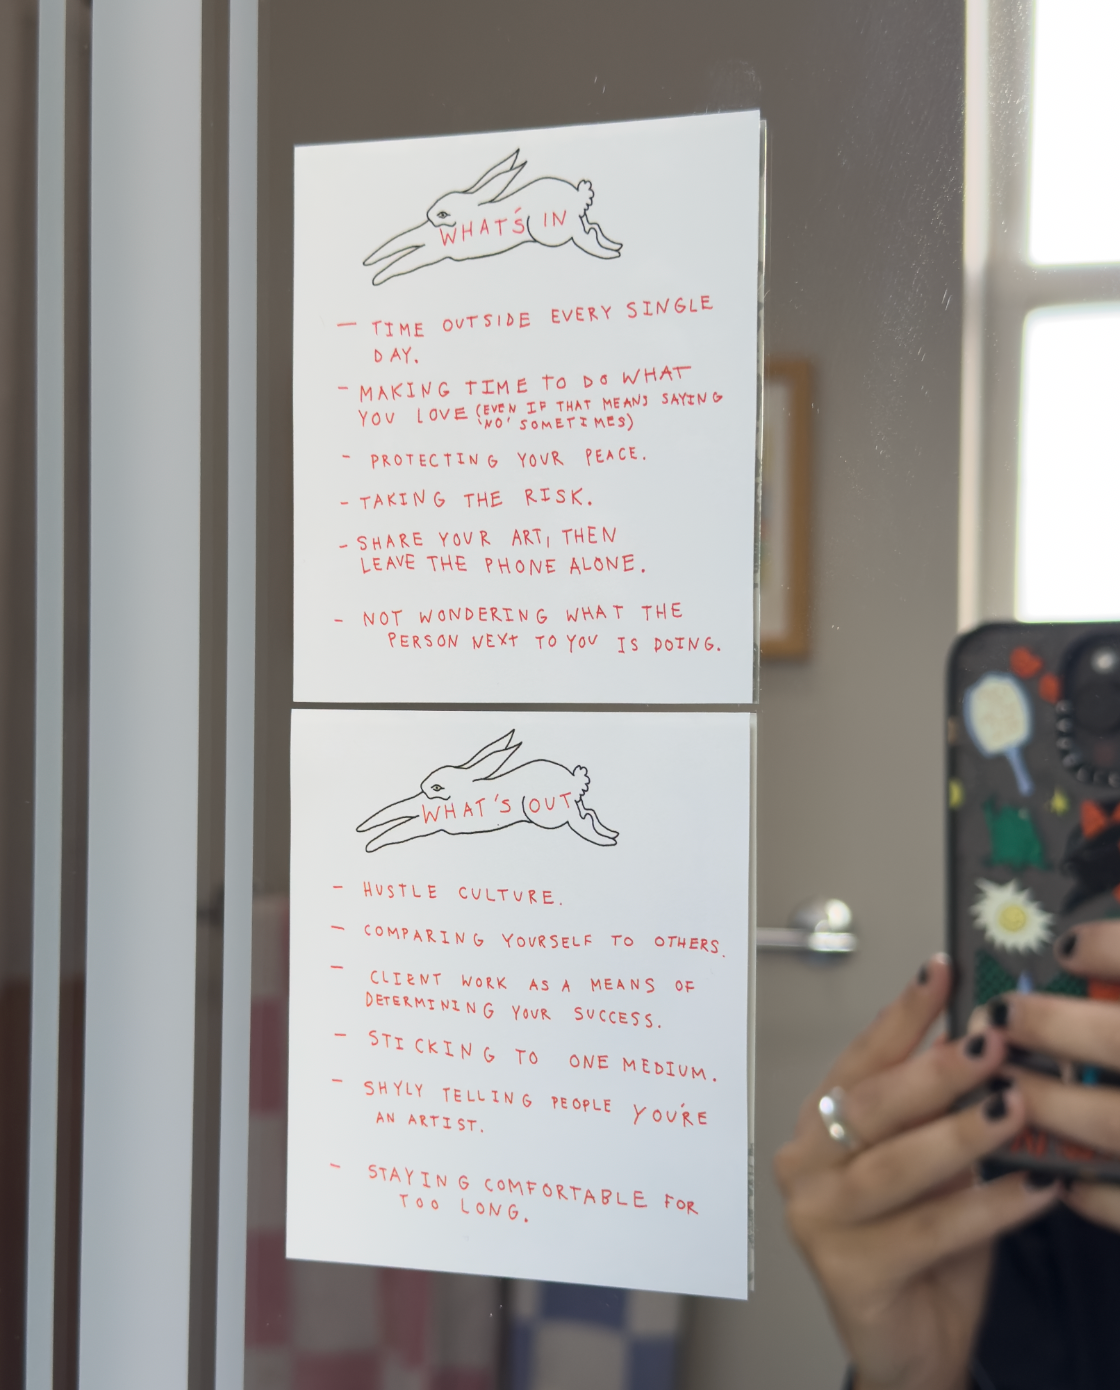 WHAT'S IN
- TIME OUTSIDE EVERY SINGLE
DAY.
- MAKING TIME TO DO WHAT
YOU LOVE (EVEN IF THAT MEANS SAYING
'NO' SOMETIMES)
- PROTECTING YOUR PEACE.
- TAKING THE RISK.
- SHARE YOUR ART, THEN
LEAVE THE PHONE ALONE.
- NOT WONDERING WHAT THE
PERSON NEXT TO YOU IS DOING.
WHAT'S OUT
- HUSTLE CULTURE.
- COMPARING YOURSELF TO OTHERS.
- CLIENT WORK AS A MEANS OF
DETERMINING YOUR SUCCESS.
- STICKING TO ONE MEDIUM.
- SHYLY TELLING PEOPLE YOU'RE
AN ARTIST.
- STAYING COMFORTABLE FOR
TOO LONG.